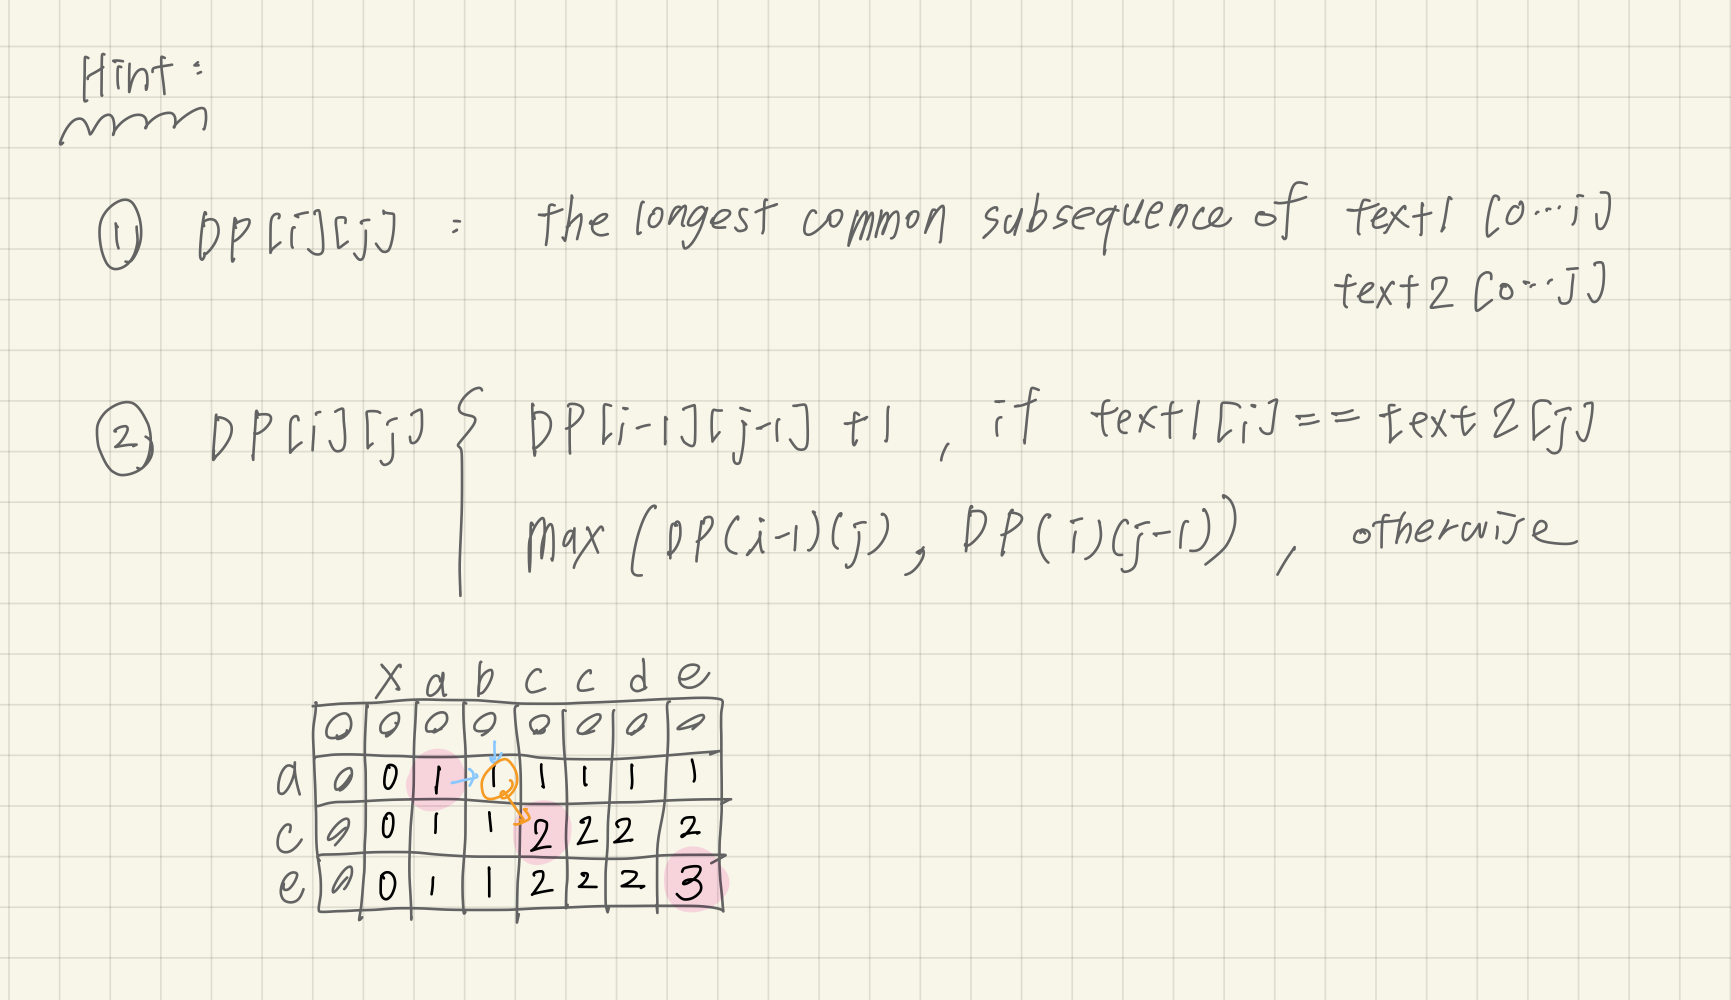 Hint:
① DP[i][j] : the longest common subsequence of text1 [0...i]
text2 [0...j]
② DP[i][j] { DP[i-1][j-1] +1 , if text1[i] == text2[j]
max (DP(i-1)(j), DP(i)(j-1)) , otherwise
x a b c c d e
0 0 0 0 0 0 0 0
a 0 0 1 1 1 1 1 1
c 0 0 1 1 2 2 2 2
e 0 0 1 1 2 2 2 3